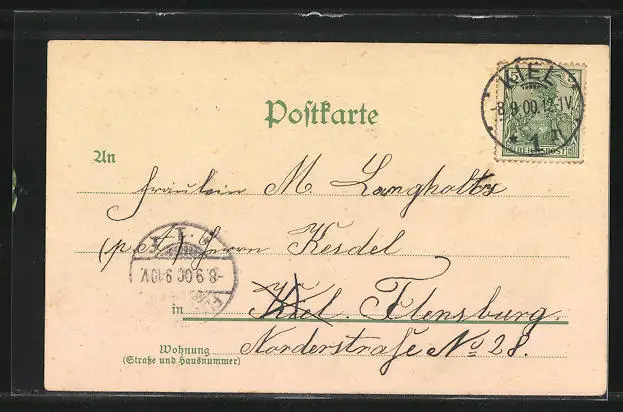 KIEL
-8.9.00.12-1V.
1
5
REICHSPOST
Postkarte
An
Fräulein M. Langholtz
(p. Ad) Herrn Kesdel
-8.9.00 9-10V.
in Kiel. Flensburg.
Wohnung
(Straße und Hausnummer)
Norderstraße No 28.